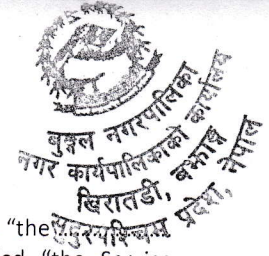 बुङ्गल नगरपालिका
नगर कार्यपालिकाको कार्यालय
खिरातडी, बझाङ
सुदूरपश्चिम प्रदेश, नेपाल
"the
"the Service